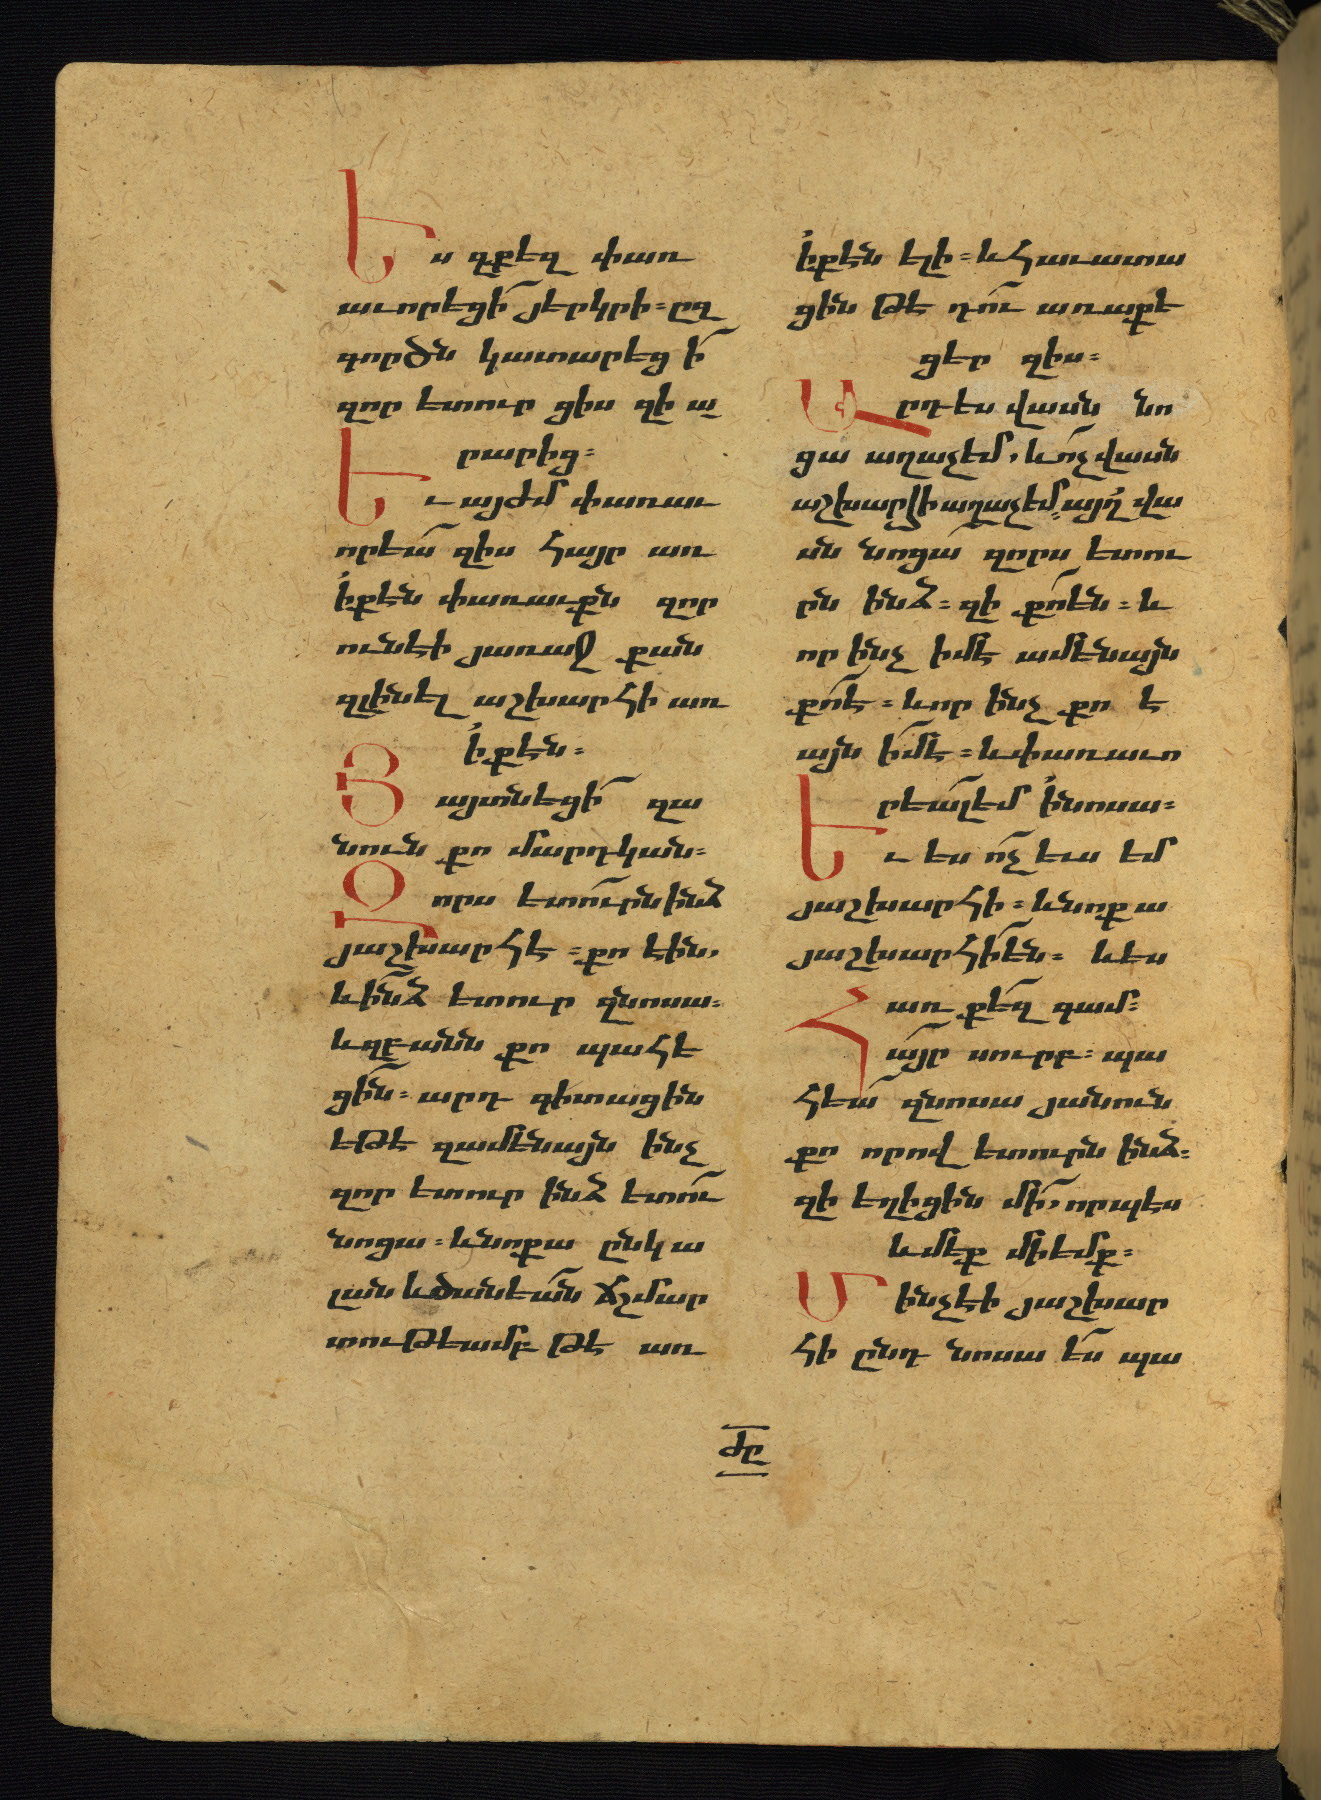 Ես զքեզ փառ
աւորեցի՛ յերկրի։ ըզ
գործն կատարեցի՛
զոր ետուր ցիս զի ա
րարից։
Եւ այժմ փառաւ
որեա՛ զիս հայր առ
ի քէն փառաւքն զոր
ունէի յառաջ քան
զլինել աշխարհի առ
ի քէն։
Յայտնեցի՛ զա
նուն քո մարդկան։
Զորս ետո՛ւրն ինձ
յաշխարհէ։ քո էին,
և ի՛նձ ետուր զնոսա։
և զբանն քո պահե
ցի՛ն։ արդ գիտացին
եթէ զամենայն ինչ
զոր ետուր ինձ ետո՛ւ
նոցա։ և նոքա ընկա
լան և ծանեա՛ն ճշմար
տութեամբ թէ առ
ի քէն էլի։ և հաւատա
ցին թէ դո՛ւ առաքե
ցեր զիս։
Արդ ես վասն նո
ցա աղաչեմ, և ո՛չ վասն
աշխարհի աղաչեմ, այլ վա
սն նոցա՛ զորս ետու
րն ինձ։ զի քո՛ են։ և
որ ինչ իմ է ամենայն
քո՛ է։ և որ ինչ քո է
այն ի՛մ է։ և փառաւո
րեա՛լ եմ ի նոսա։
Եւ ես ո՛չ ևս եմ
յաշխարհի։ և նոքա
յաշխարհի՛ են։ և ես
առ քե՛զ գամ։
Հա՛յր սուրբ։ պա
հեա՛ զնոսա յանուն
քո որով ետուրն ինձ։
զի եղիցին մի՛, որպէս
և մեք մի եմք։
Մինչ էի յաշխար
հի ընդ նոսա ե՛ս պա
ժը